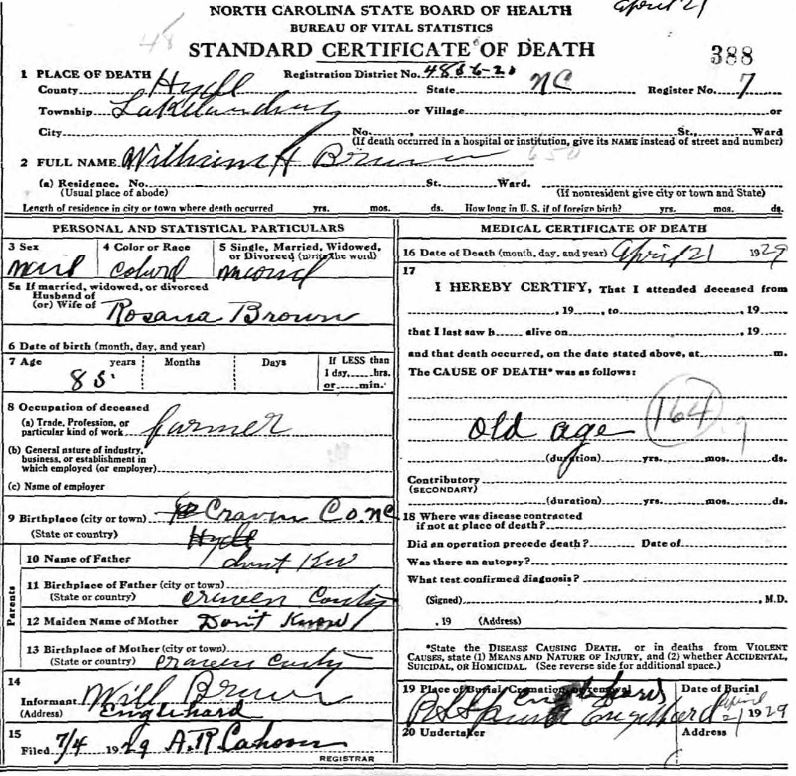 NORTH CAROLINA STATE BOARD OF HEALTH April 21
BUREAU OF VITAL STATISTICS
48 STANDARD CERTIFICATE OF DEATH 388
1 PLACE OF DEATH Registration District No. 4806-20
County Hyde State NC Register No. 7
Township or Village or
City No. St., Ward
(If death occurred in a hospital or institution, give its NAME instead of street and number)
2 FULL NAME H Brown
(a) Residence. No. St. Ward.
(Usual place of abode) (If nonresident give city or town and State)
Length of residence in city or town where death occurred yrs. mos. ds. How long in U. S. if of foreign birth? yrs. mos. ds.
PERSONAL AND STATISTICAL PARTICULARS
3 Sex 4 Color or Race 5 Single, Married, Widowed, or Divorced (write the word)
5a If married, widowed, or divorced
Husband of
(or) Wife of Rosana Brown
6 Date of birth (month, day, and year)
7 Age years Months Days If LESS than
1 day, hrs.
or min.
85
8 Occupation of deceased
(a) Trade, Profession, or
particular kind of work farmer
(b) General nature of industry,
business, or establishment in
which employed (or employer)
(c) Name of employer
9 Birthplace (city or town) Craven Co. NC
(State or country) Hyde
Parents
10 Name of Father dont
11 Birthplace of Father (city or town)
(State or country) Craven
12 Maiden Name of Mother Don't Know
13 Birthplace of Mother (city or town)
(State or country) Craven
14
Informant Will Brown
(Address) Englehard
15
Filed 7/4 1929 A.R. Cahoon
REGISTRAR
MEDICAL CERTIFICATE OF DEATH
16 Date of Death (month, day, and year) April 21 1929
17
I HEREBY CERTIFY, That I attended deceased from
, 19 , to , 19
that I last saw h alive on , 19
and that death occurred, on the date stated above, at m.
The CAUSE OF DEATH* was as follows:
old age 164
(duration) yrs. mos. ds.
Contributory
(SECONDARY)
(duration) yrs. mos. ds.
18 Where was disease contracted
if not at place of death?
Did an operation precede death? Date of
Was there an autopsy?
What test confirmed diagnosis?
(Signed) , M.D.
, 19 (Address)
*State the DISEASE CAUSING DEATH, or in deaths from VIOLENT
CAUSES, state (1) MEANS AND NATURE OF INJURY, and (2) whether ACCIDENTAL,
SUICIDAL, or HOMICIDAL. (See reverse side for additional space.)
19 Place of Burial, Cremation or removal Date of Burial
Engelhard April 21 1929
20 Undertaker Address